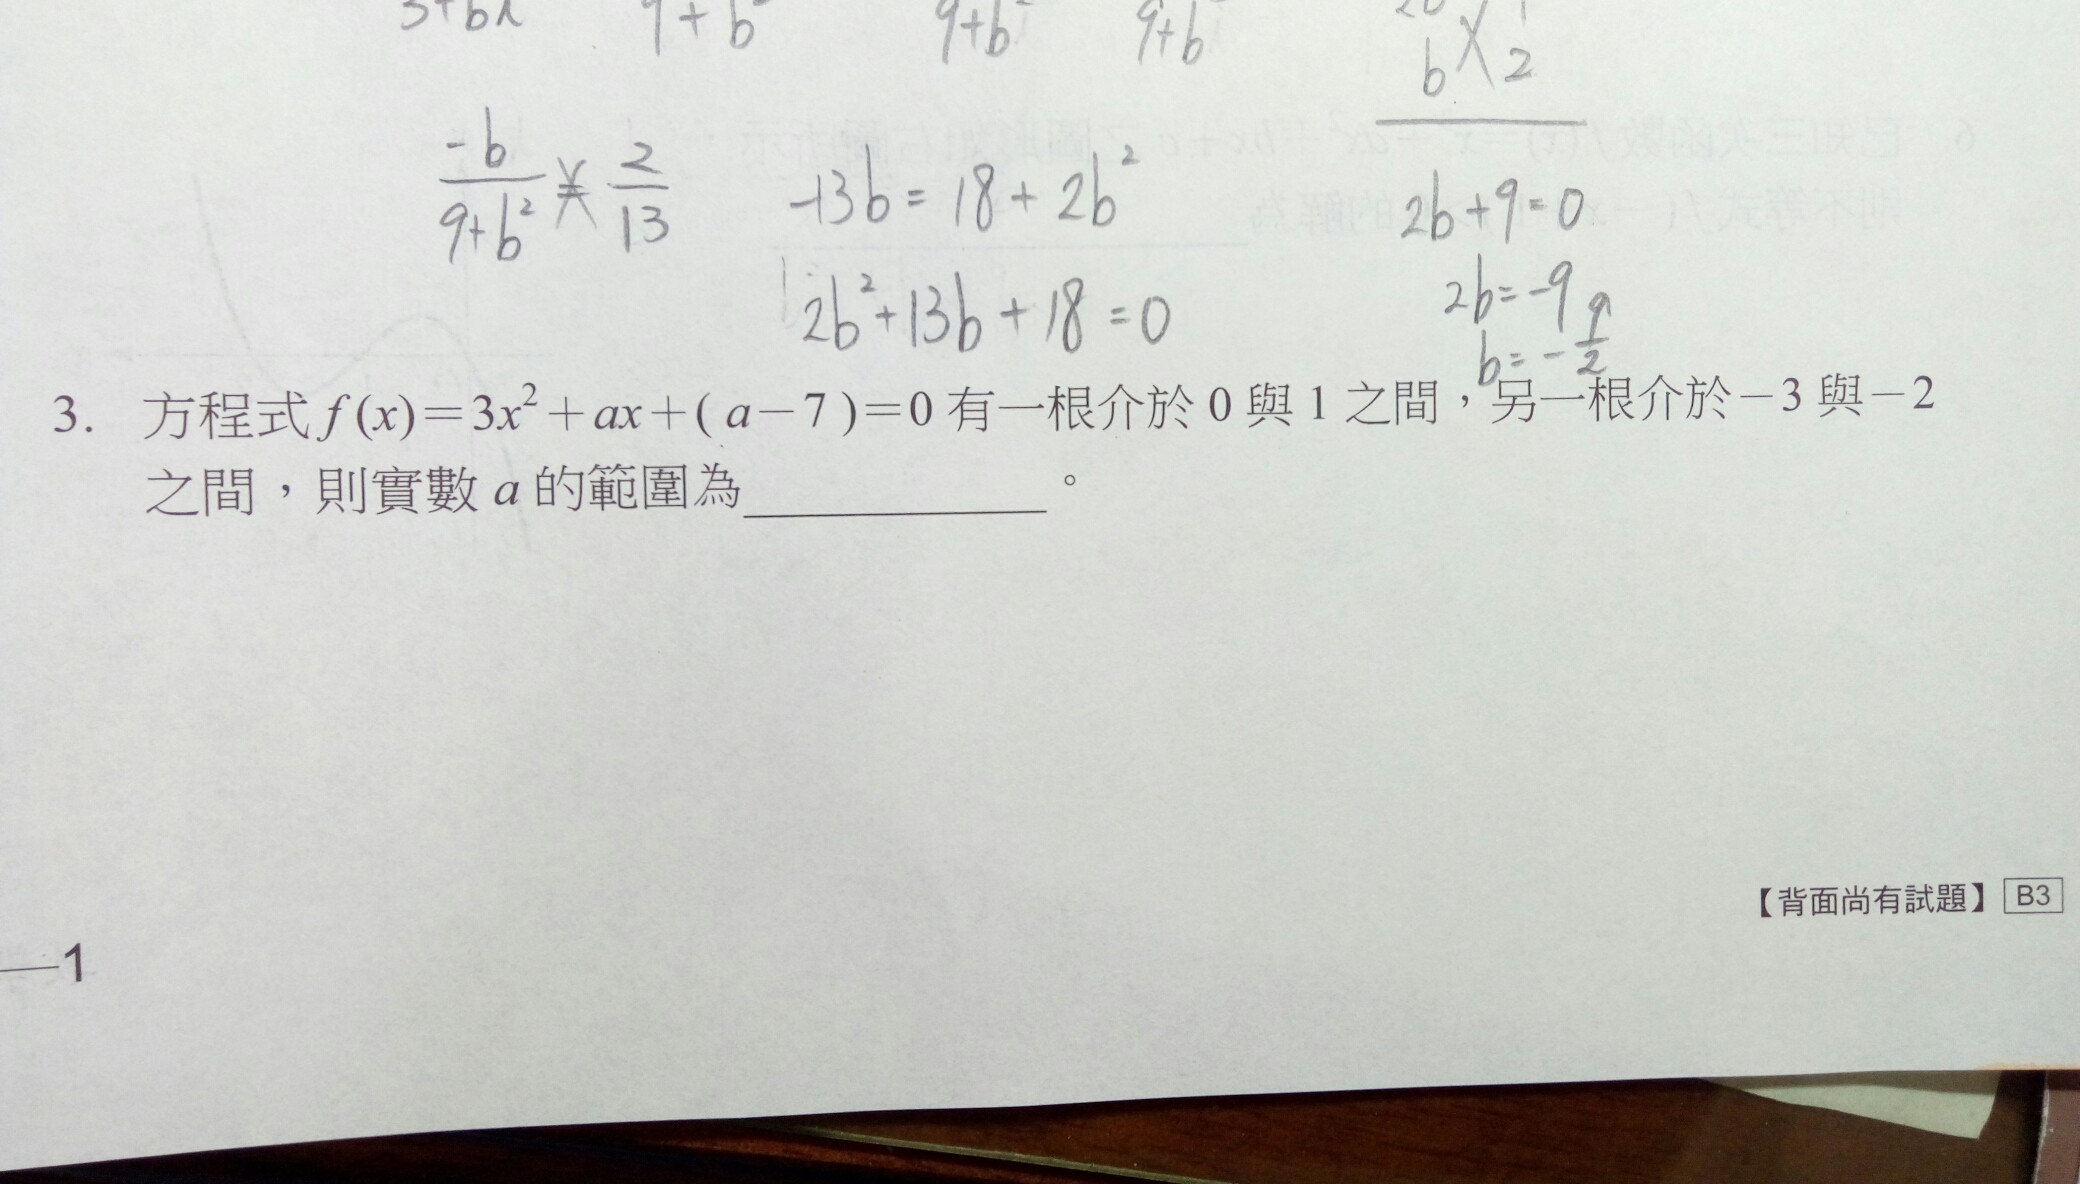 3+bi 9+b² 9+b² 9+b²
b 2
-b/9+b² 2/13 -13b=18+2b² 2b+9=0
2b²+13b+18=0 2b=-9
b=-9/2
3. 方程式 f(x)=3x²+ax+(a-7)=0 有一根介於 0 與 1 之間，另一根介於-3 與-2
之間，則實數 a 的範圍為__________。
【背面尚有試題】 B3
—1